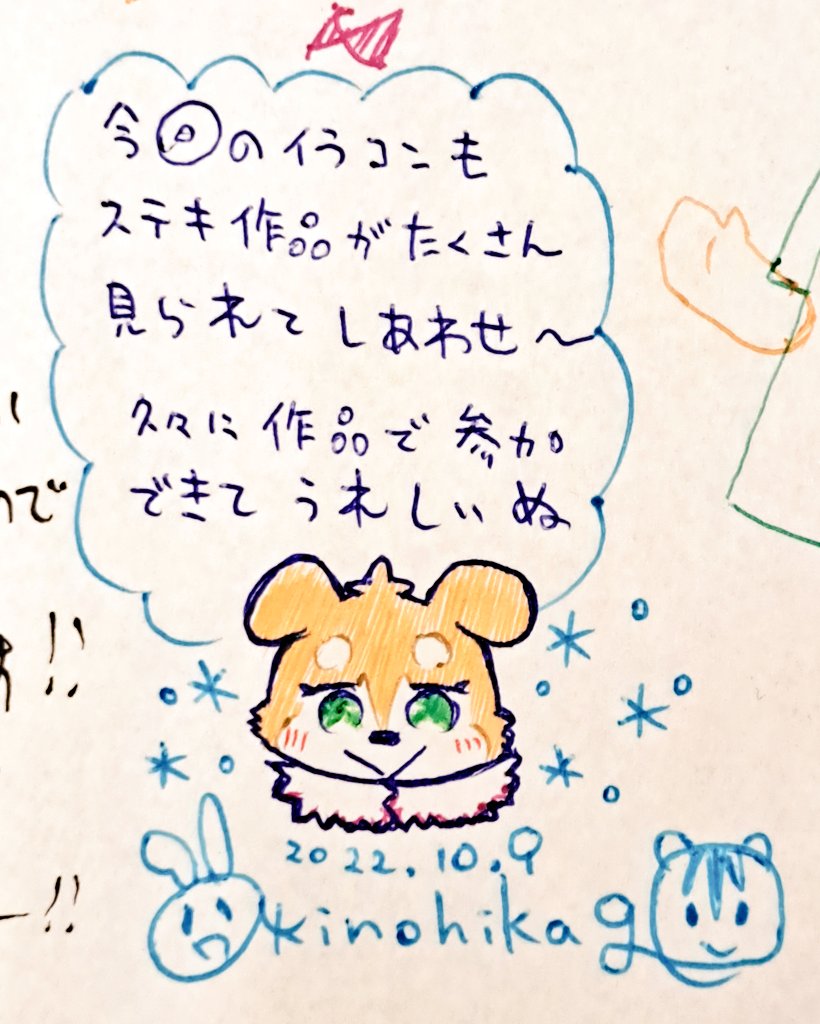 今回のイラコンも
ステキ作品がたくさん
見られてしあわせ〜
久々に作品で参加
できてうれしいぬ
2022.10.9
kinohikag
ので
!!
ー!!